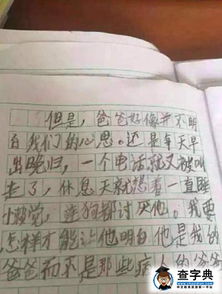 但是，爸爸好像并不明
白我们的心思。还是每天早
出晚归，一个电话就又被叫
走了，休息天就想着一直睡
小猪觉，连狗都讨厌他。我要
怎样才能让他明白他是我的
爸爸而不是那些病人的爸爸
查字典